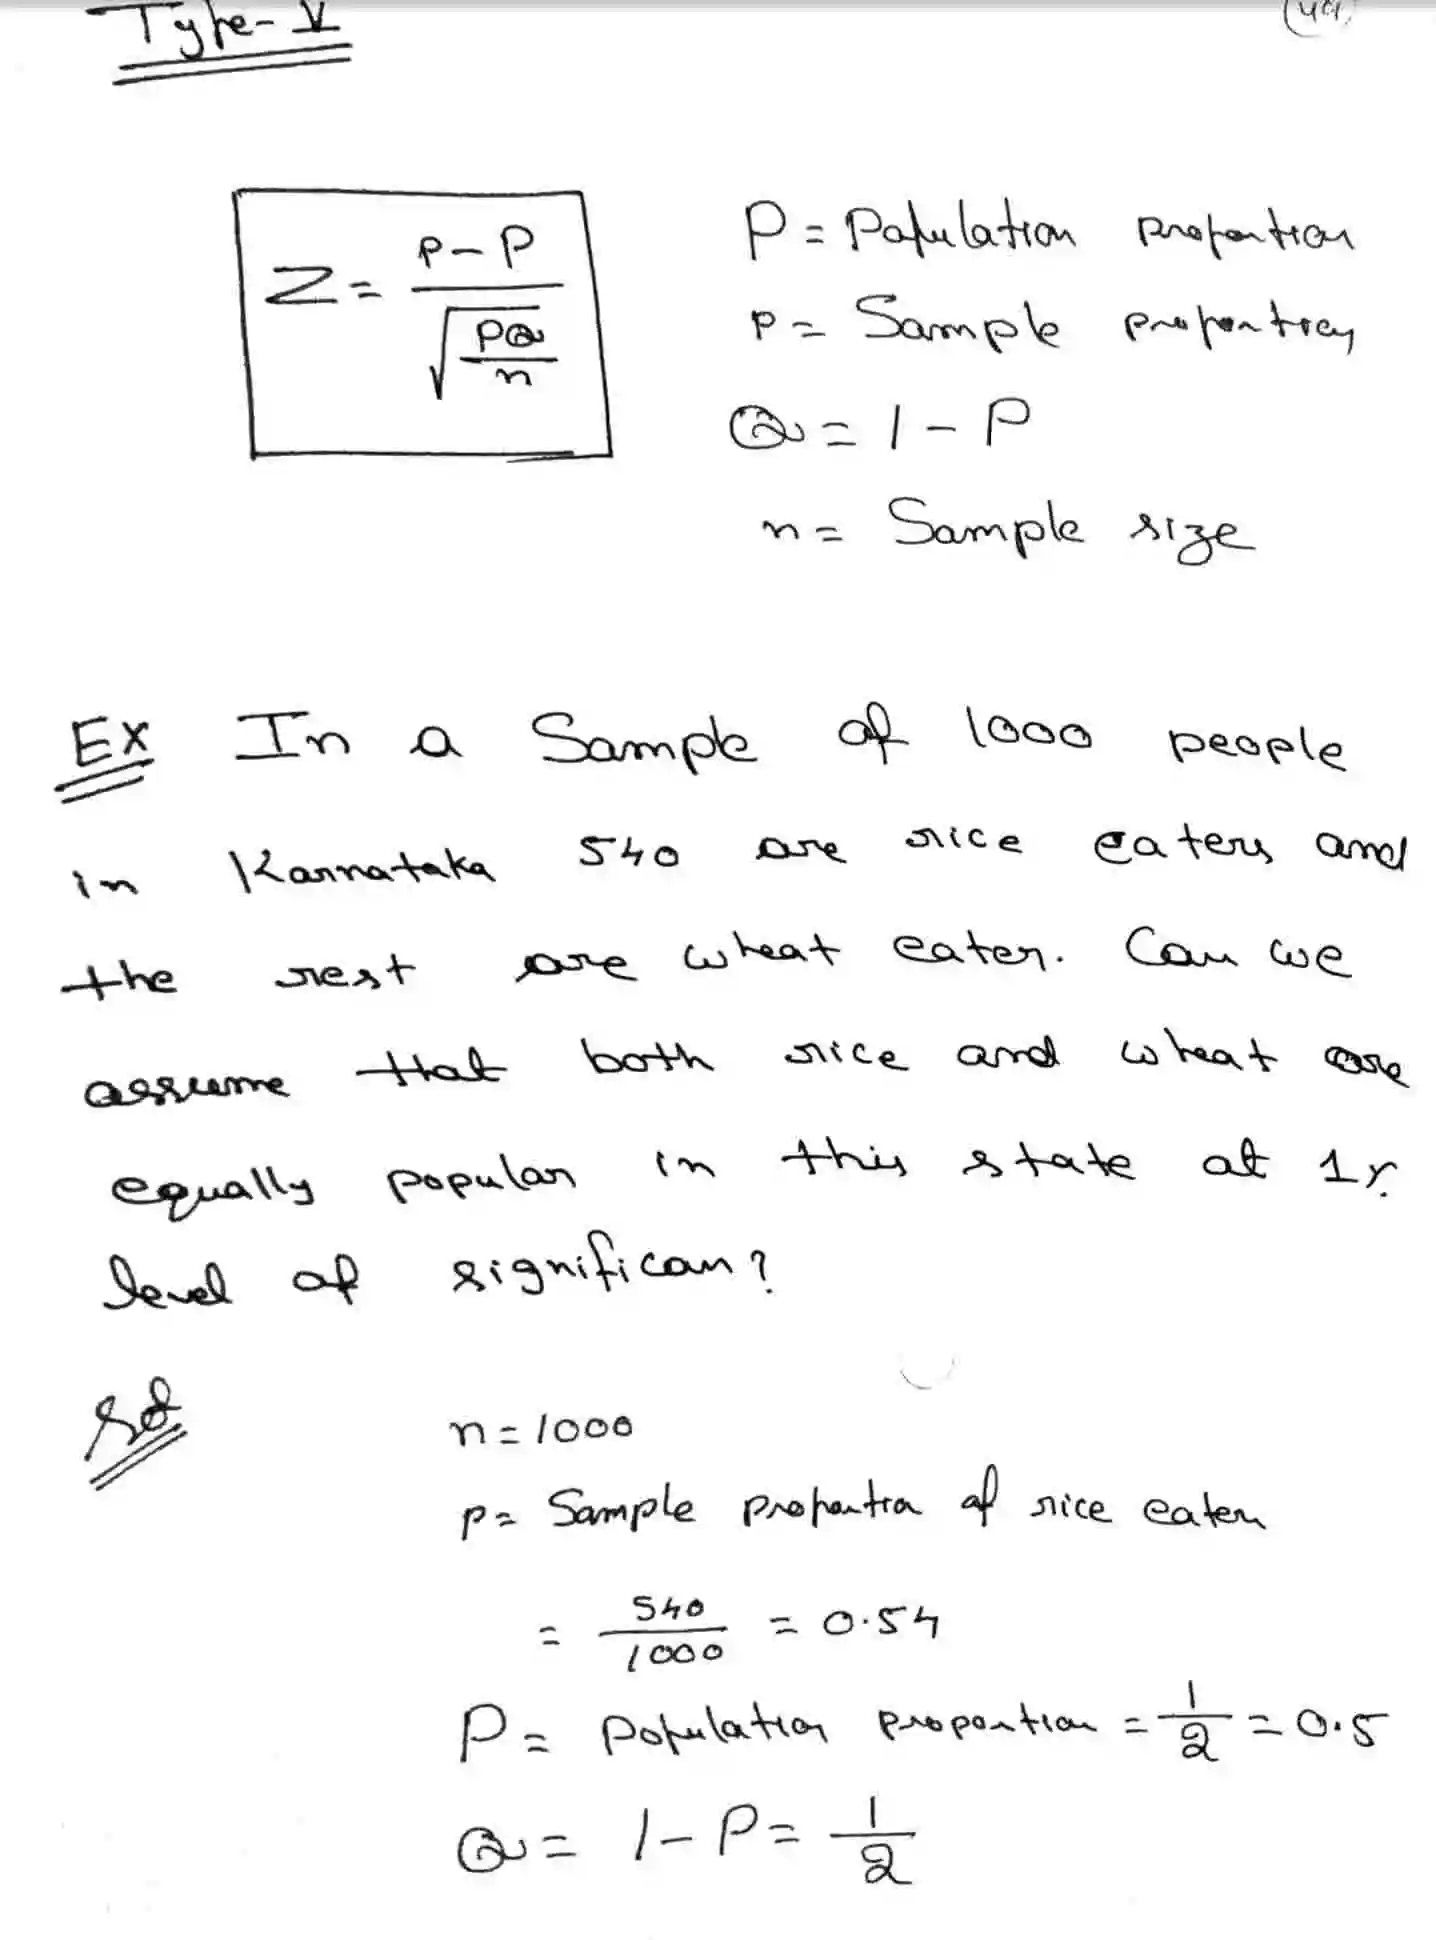 Type-V
Z = p-P / √(PQ/n)
P = Population proportion
p = Sample proportion
Q = 1 - P
n = Sample size
Ex In a Sample of 1000 people
in Karnataka 540 are rice eaters and
the rest are wheat eater. Can we
assume that both rice and wheat are
equally popular in this state at 1%
level of significan?
Sol
n = 1000
p = Sample proportion of rice eater
= 540/1000 = 0.54
P = Population proportion = 1/2 = 0.5
Q = 1 - P = 1/2